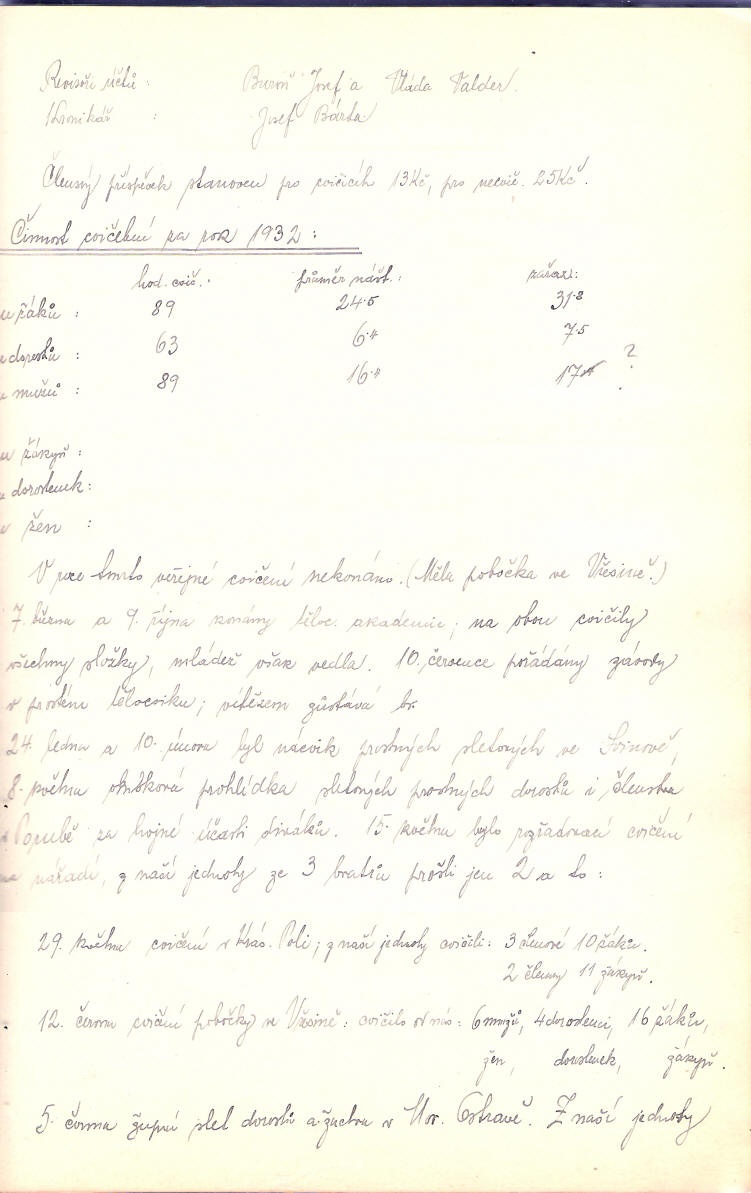 Revisoři účtů : Buroň Josef a Vláda Valder.
Kronikář : Josef Bárta
Členský příspěvek stanoven pro cvičících 13Kč, pro necvič. 25Kč.
Činnost cvičební za rok 1932 :
hod. cvič. průměr návšt.: zařaz.:
u žáků : 89 24·5 31·8
u dorostů : 63 6·" 7·5
u mužů : 89 16·" 17 ?
u žákyň :
u dorostenek :
u žen :
V roce tomto veřejné cvičení nekonáno. (Měla pobočka ve Vřesině.)
7. března a 9. října konány těloc. akademie; na obou cvičily
všechny složky, mládež však vedla. 10. července pořádány závody
v prostém tělocviku; vítězem zůstává br.
24. ledna a 10. února byl nácvik prostných sletových ve Svinově,
8. května okrsková prohlídka sletových prostných dorostu i členstva
Porubě za hojné účasti diváků. 15. května bylo rozřaďovací cvičení
na nářadí, z naší jednoty ze 3 bratrů prošli jen 2 a to :
29. května cvičení v Krás. Poli; z naší jednoty cvičili: 3 členové 10 žáků.
2 členky 11 žákyň.
12. června cvičení pobočky ve Vřesině: cvičilo od nás: 6 mužů, 4 dorostenci, 16 žáků,
žen, dorostenek, žákyň.
5. června župní slet dorostu a žactva v Mor. Ostravě. Z naší jednoty